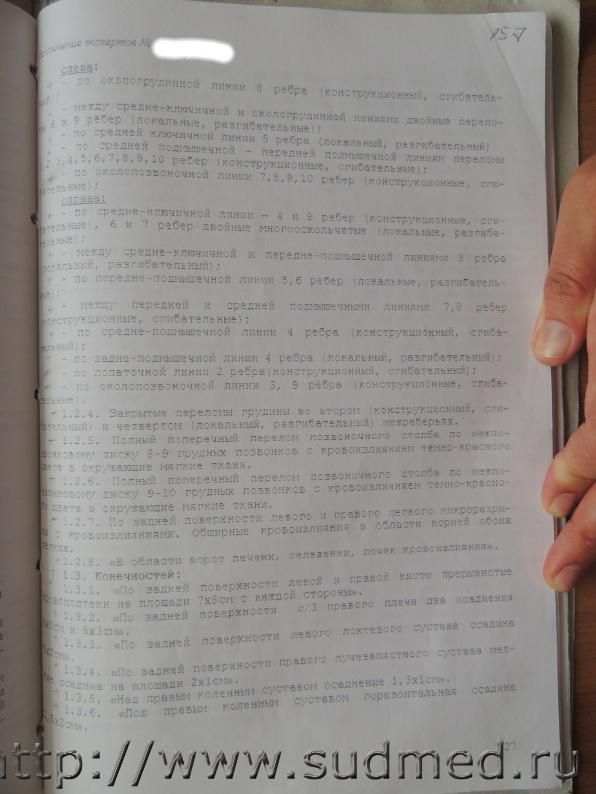 157
Заключение экспертов №
слева:
+ - по окологрудинной линии 6 ребра (конструкционный, сгибатель-
ный);
- между средне-ключичной и окологрудинной линиями двойные перело-
мы 6 и 9 рёбер (локальные, разгибательные);
- по средней ключичной линии 5 ребра (локальный, разгибательный)
+ - по средней подмышечной - передней подмышечной линиям переломы
2,3,4,5,6,7,8,9,10 ребер (конструкционные, сгибательные);
- по околопозвоночной линии 7,8,9,10 ребер (конструкционные, сги-
бательные);
справа:
+ - по средне-ключичной линии – 4 и 9 ребер (конструкционные, сги-
бательные), 6 и 7 ребер двойные многооскольчатые (локальные, разгиба-
тельные);
+ - между средне-ключичной и передне-подмышечной линиями 8 ребра
локальный, разгибательный);
+ - по передне-подмышечной линии 5,6 ребер (локальные, разгибатель-
ные);
- между передней и средней подмышечными линиями 7,8 ребер
конструкционные, сгибательные);
+ - по средне-подмышечной линии 4 ребра (конструкционный, сгиба-
тельный);
- по задне-подмышечной линии 4 ребра (локальный, разгибательный);
- по лопаточной линии 2 ребра(конструкционный, сгибательный);
- по околопозвоночной линии 3, 9 рёбра (конструкционные, сгиба-
тельные).
1.2.4. Закрытые переломы грудины во втором (конструкционный, сги-
бательный) и четвертом (локальный, разгибательный) межреберьях.
1.2.5. Полный поперечный перелом позвоночного столба по межпо-
звонковому диску 8-9 грудных позвонков с кровоизлиянием темно-красного
цвета в окружающие мягкие ткани.
1.2.6. Полный поперечный перелом позвоночного столба по межпо-
звонковому диску 9-10 грудных позвонков с кровоизлиянием темно-красно-
го цвета в окружающие мягкие ткани.
1.2.7. По задней поверхности левого и правого легкого микроразры-
вы с кровоизлияниями. Обширные кровоизлияния в области корней обоих
легких.
1.2.8. «В области ворот печени, селезенки, почек кровоизлияния».
1.3. Конечностей:
1.3.1. «По задней поверхности левой и правой кисти прерывистые
кровоподтеки на площади 7х8см с каждой стороны».
1.3.2. «По задней поверхности с/3 правого плеча два осаднения
см и 5х3см».
1.3.3. «По задней поверхности левого локтевого сустава ссадина
х2см».
1.3.4. «По задней поверхности правого лучезапястного сустава мел-
кие ссадина на площади 2х1см».
1.3.5. «Над правым коленным суставом осаднение 1,3х1см».
1.3.6. «Под правым коленным суставом горизонтальная ссадина
,5х2см».
27
http://www.sudmed.ru